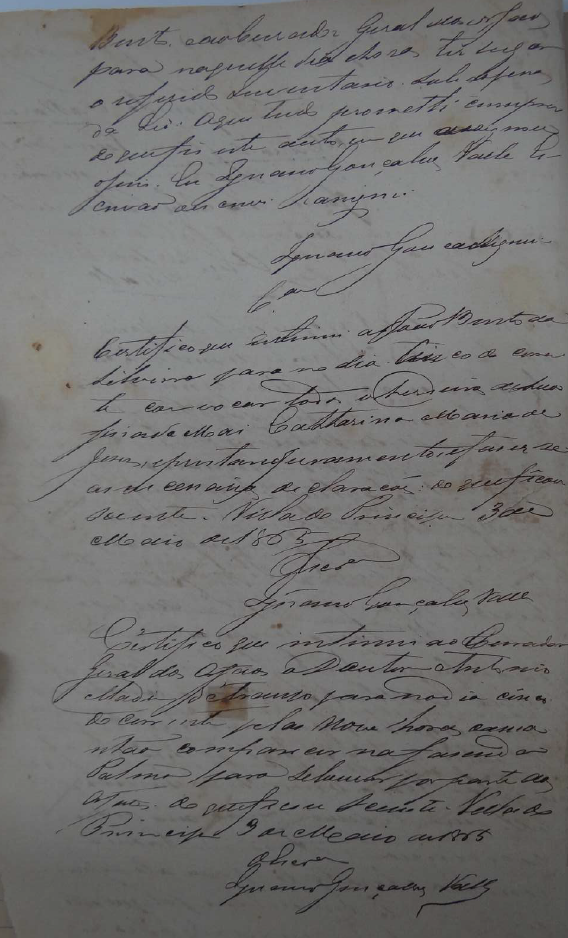 Bento, e ao Curador Geral dos orfaos
para naquelle dia e hora ter lugar
o referido inventario. Sub as penas
da Lei. Aque tudo prometti cumprir
do que fis este auto, em que assigno
Eu Ignacio Gonçalves Valle Es-
crivão que escrevi e assignei.
Ignacio Gonçalves
Certifico que intimei a João Bento da
Silveira para no dia cinco do corren
te convocar todos os herdeiros de sua
finada Mai Catharina Maria de
Jesus, e prestar juramento, e fazer as
necessarias declaração: do que ficou
sciente. Villa do Principe 3 de
Maio de 1865
Ignacio Gonçalves Valle
Certifico que intimei ao Curador
Geral dos Orfaos o Doutor Antonio
para no dia cinco
do corrente pelas nove horas da ma
nhão comparecer na fasenda
Palma para por parte dos
Orfaos. do que ficou sciente. Villa do
Principe 3 de Maio de 1865
Ignacio Gonçalves Valle